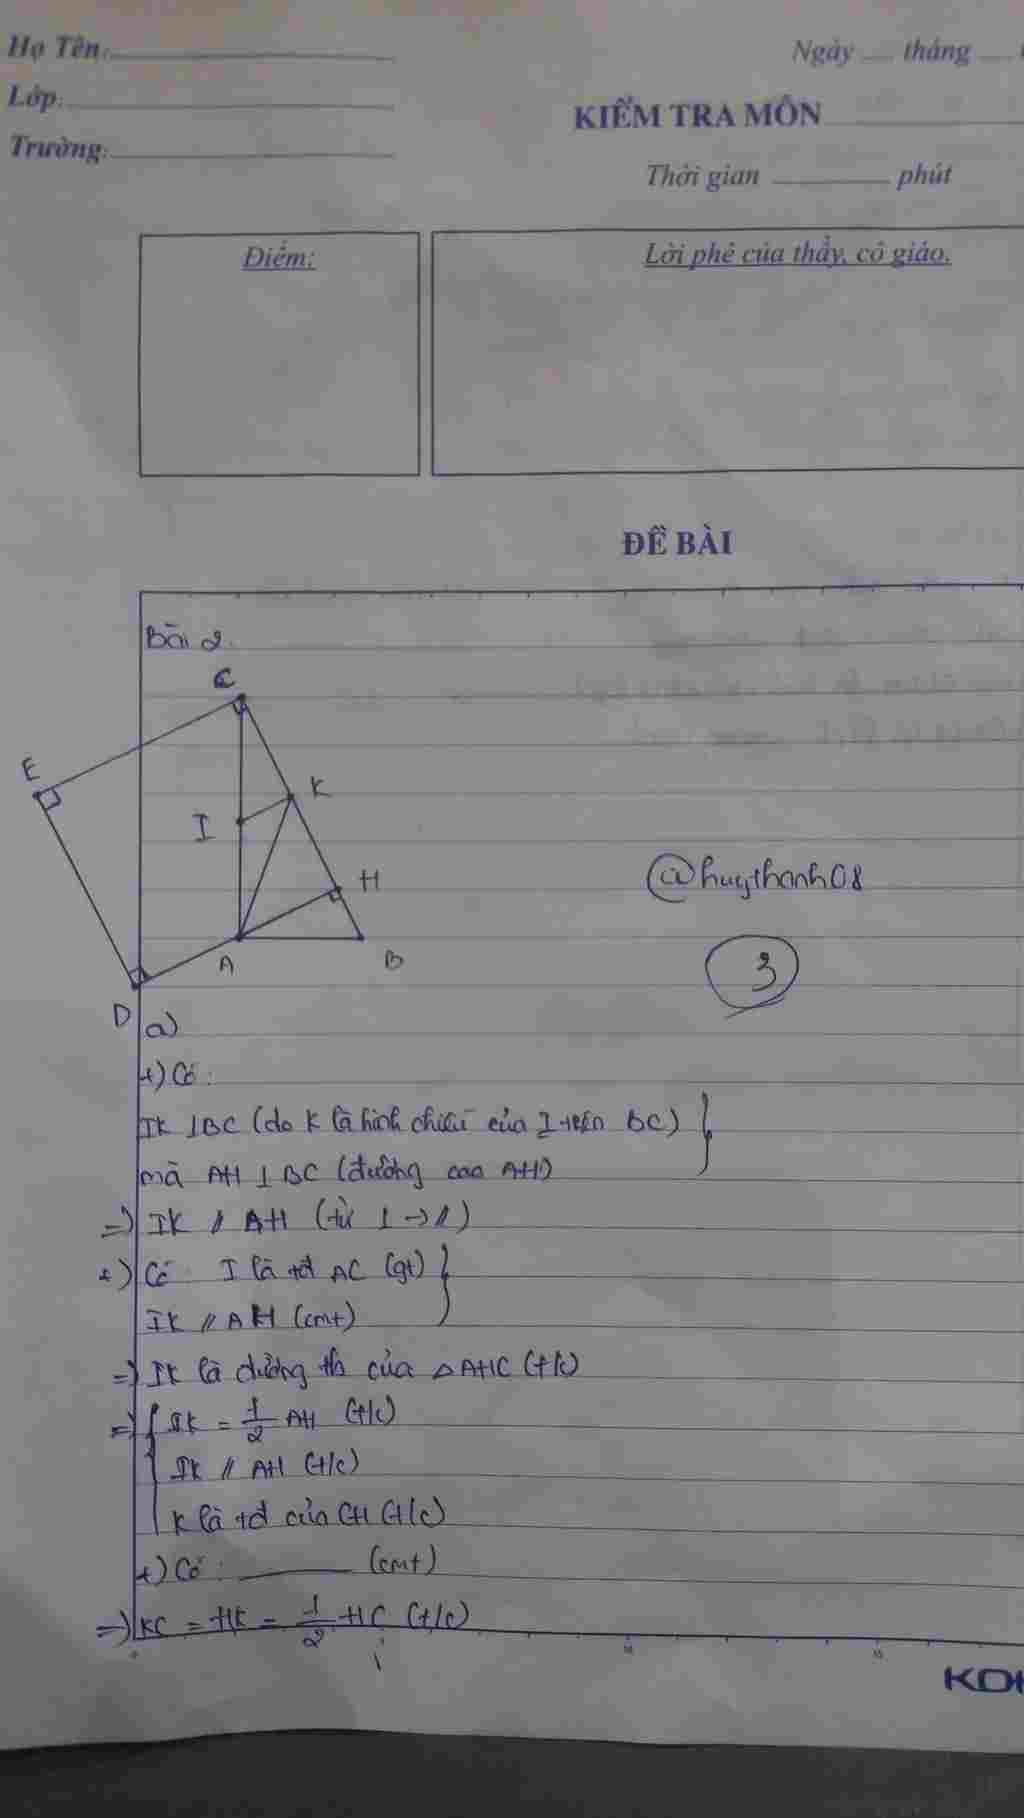 Họ Tên:
Ngày tháng
Lớp:
KIỂM TRA MÔN
Trường:
Thời gian phút
Điểm:
Lời phê của thầy, cô giáo.
ĐỀ BÀI
Bài 2.
C
E
K
I
H
@huythanh08
A
B
3
D
a)
+) Có:
IK ⊥ BC (do K là hình chiếu của I trên BC)
mà AH ⊥ BC (đường cao AH)
=) IK // AH (từ ⊥ -> //)
+) Có I là tđ AC (gt)
IK // AH (cmt)
=) IK là đường tb của △AHC (t/c)
=) IK = 1/2 AH (t/c)
IK // AH (t/c)
K là tđ của CH (t/c)
+) Có: (cmt)
=) KC = HK = 1/2 HC (t/c)